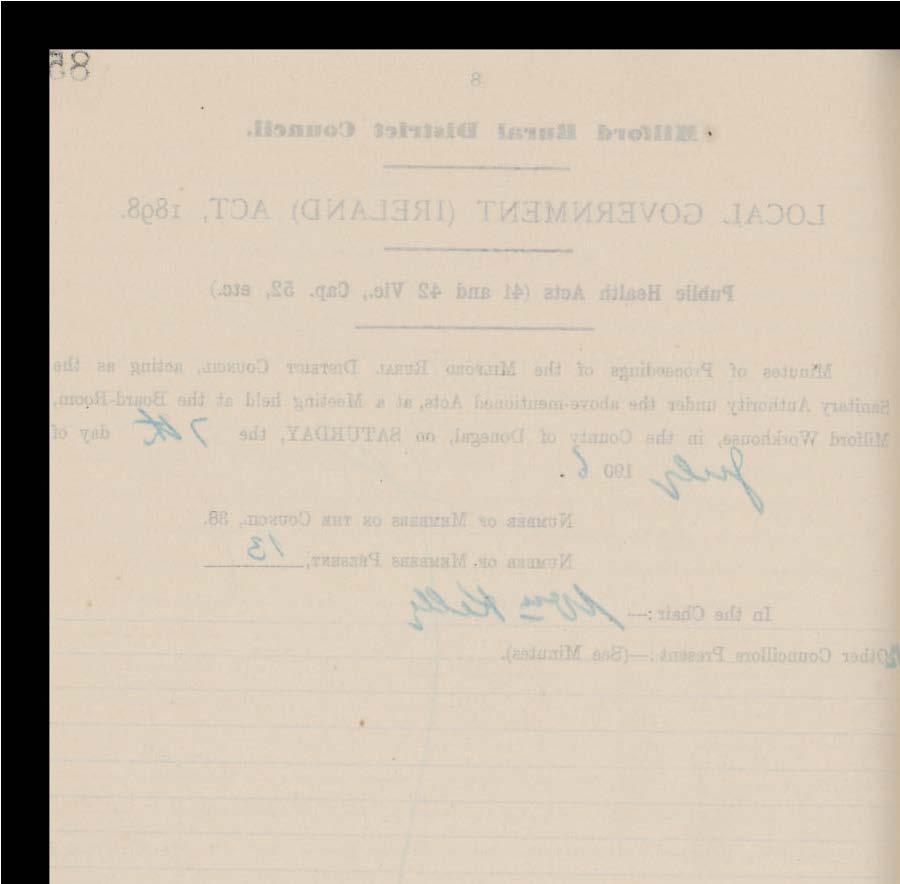 8
Milford Rural District Council.
LOCAL GOVERNMENT (IRELAND) ACT, 1898.
Public Health Acts (41 and 42 Vic., Cap. 52, etc.)
Minutes of Proceedings of the MILFORD RURAL DISTRICT COUNCIL, acting as the
Sanitary Authority under the above-mentioned Acts, at a Meeting held at the Board-Room,
Milford Workhouse, in the County of Donegal, on SATURDAY, the 7th day of
July 1906.
NUMBER OF MEMBERS ON THE COUNCIL, 38.
NUMBER OF MEMBERS PRESENT, 13
In the Chair:— Wm Kelly
Other Councillors Present:—(See Minutes).